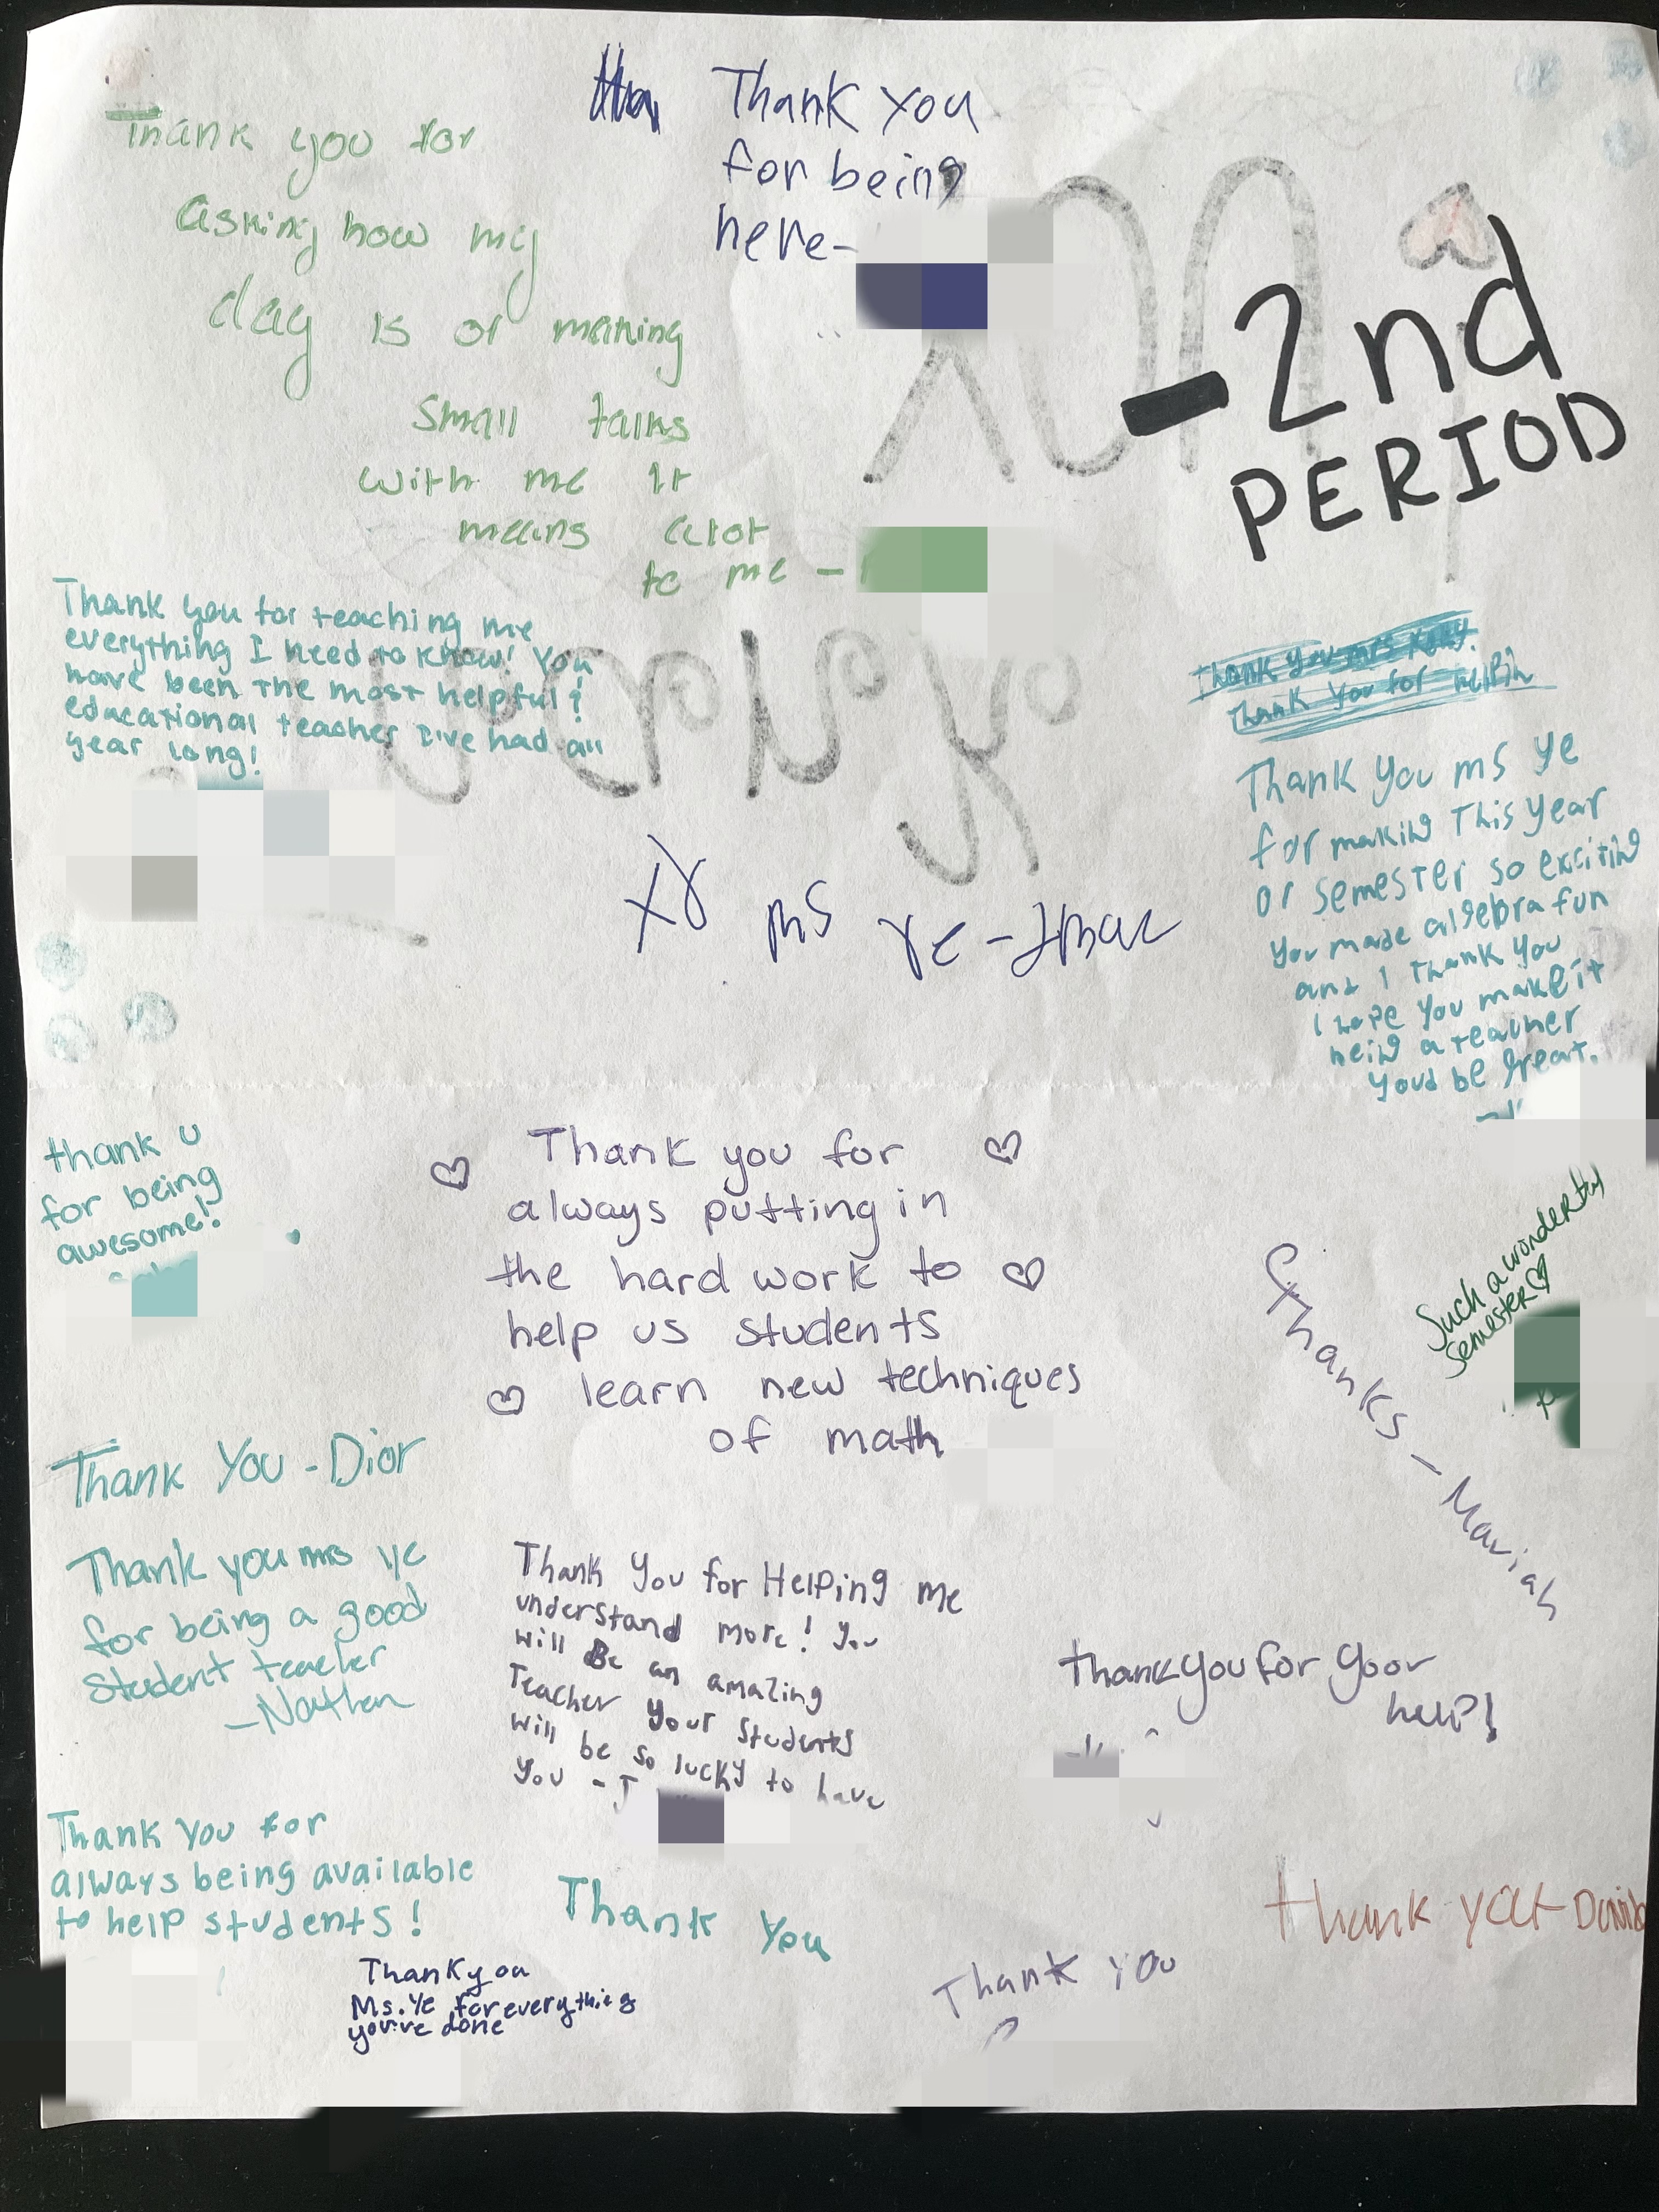 Thank you for
asking how my
day is or making
small talks
with me It
means alot
to me -
Thank you
for being
here-
-2nd
PERIOD
Thank you for teaching me
everything I need to know! You
have been the most helpful &
educational teacher I've had all
year long!
ms Ye -
Thank you mrs
Thank you for
Thank you ms ye
for making This year
or semester so exciting
you made algebra fun
and I Thank you
I hope you make it
being a teacher
youd be great.
thank u
for being
awesome!
Thank you for
always putting in
the hard work to
help us students
learn new techniques
of math
Such a wonderful
semester
Thanks - Mariah
Thank You - Dior
Thank you mrs ye
for being a good
student teacher
- Nathan
Thank you for Helping me
understand more! You
will Be an amazing
Teacher your students
will be so lucky to have
you - J
thank you for your
help!
Thank you for
always being available
to help students!
Thank You
Thank you
Ms. Ye for everything
you've done
Thank you
thank you -